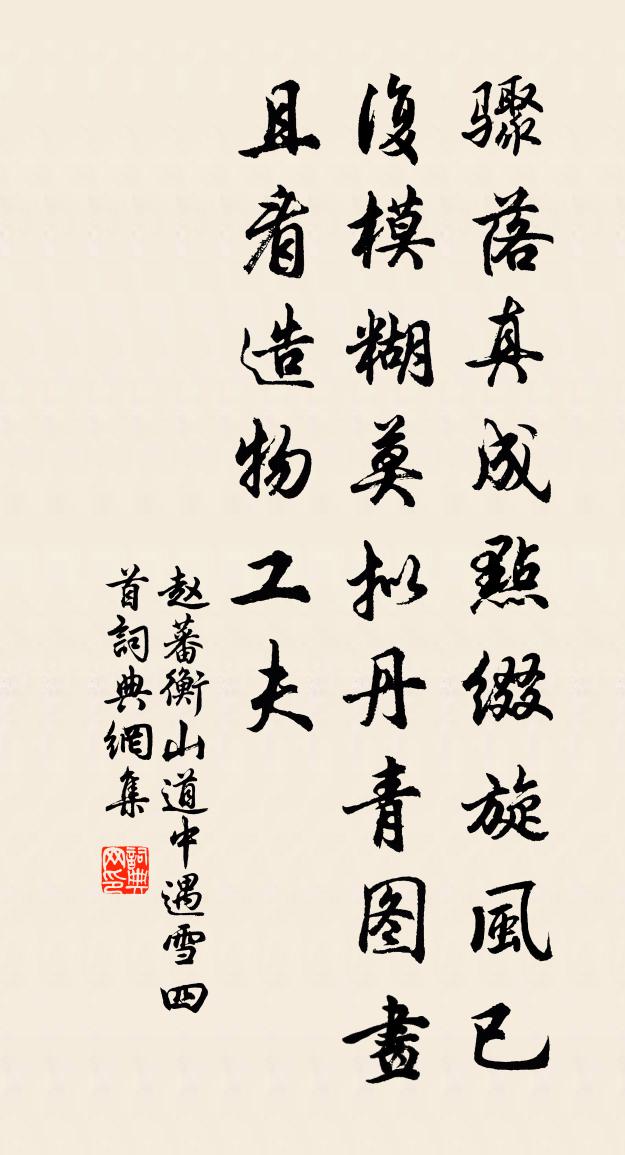 骤落真成點綴旋風已
復模糊莫拟丹青图畫
且看造物工夫
赵蕃衡山道中遇雪四
首詞典網集
詞典网印